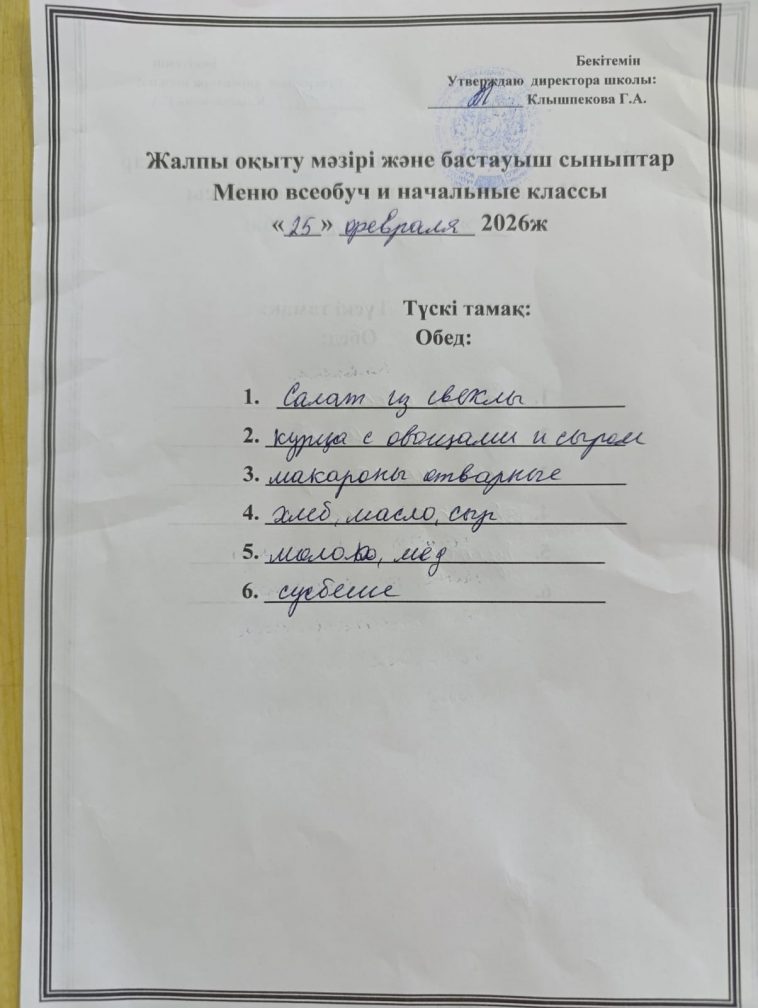 Бекітемін
Утверждаю директора школы:
Клышпекова Г.А.
Жалпы оқыту мәзірі және бастауыш сыныптар
Меню всеобуч и начальные классы
«25» февраля 2026ж
Түскі тамақ:
Обед:
1. Салат из свеклы
2. курица с овощами и сыром
3. макароны отварные
4. хлеб, масло, сыр
5. молоко, мёд
6.